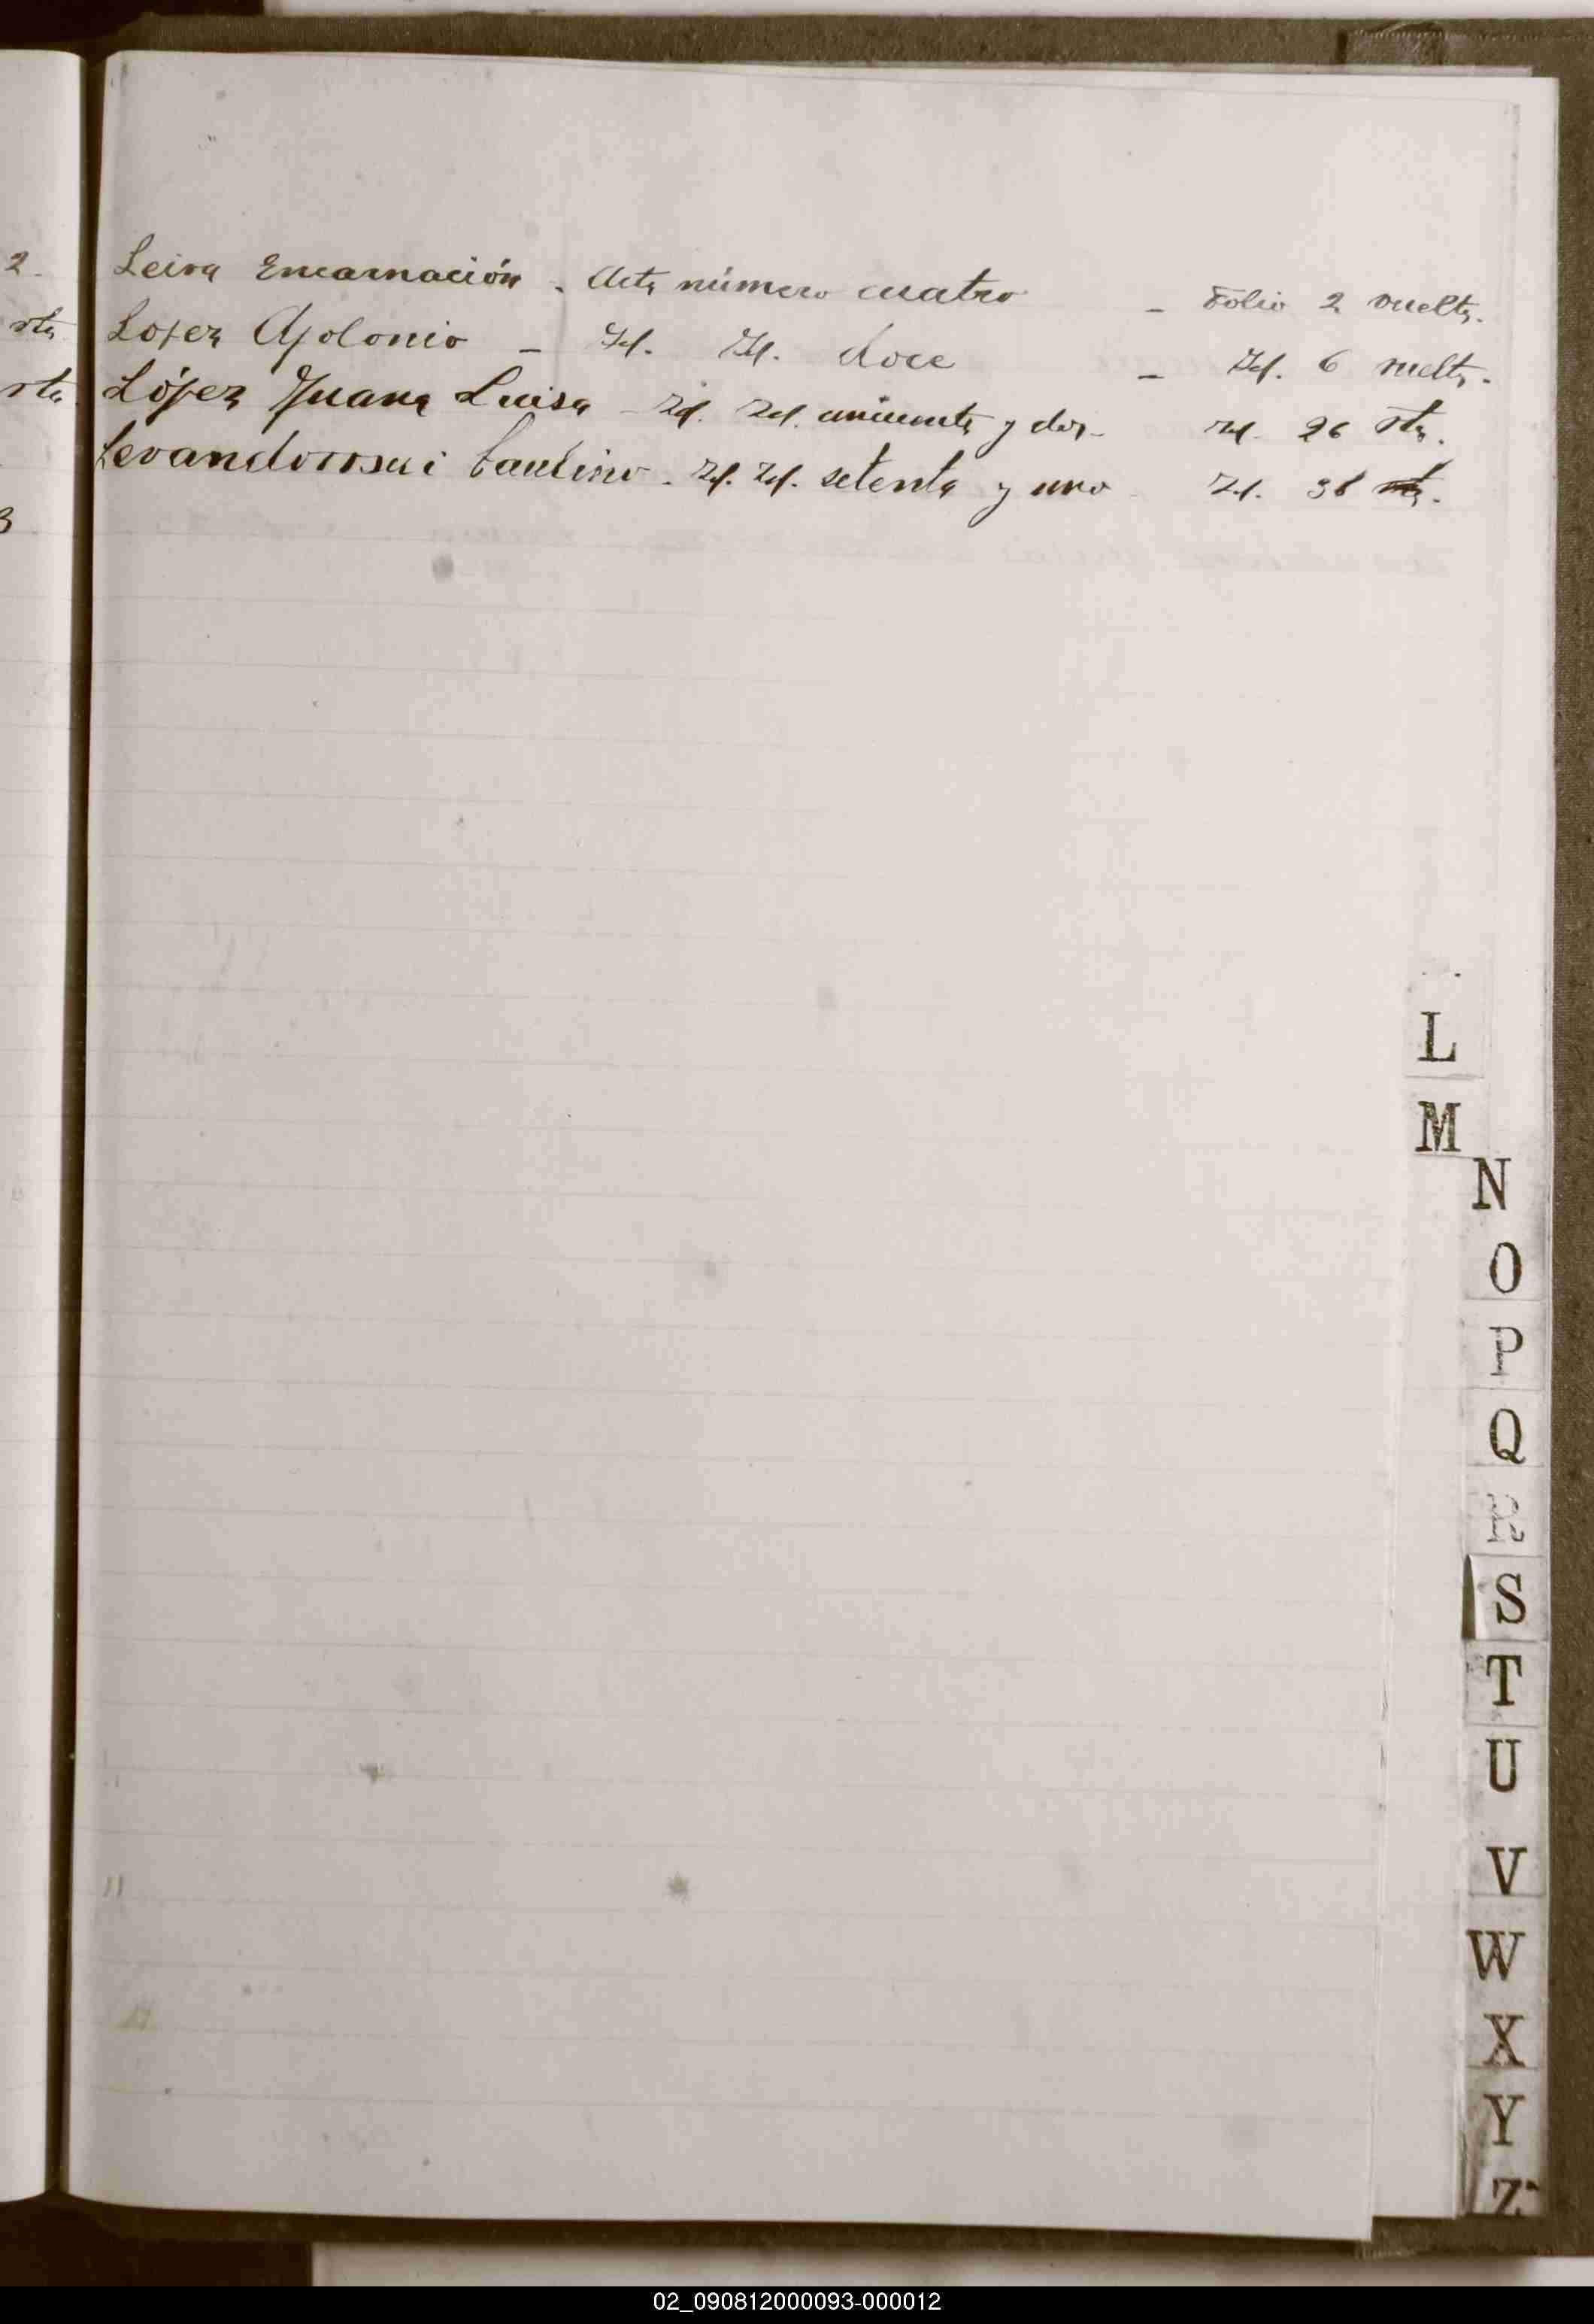 2.
Leiva Encarnación - Acta número cuatro - Folio 2 vuelta.
vta
Lopez Apolonio - Id. Id. doce - Id. 6 vuelta.
vta
López Juana Luisa - Id. Id. cincuenta y dos - Id. 26 vta.
Levandowski Paulino - Id. Id. setenta y uno - Id. 36
3
L
M
N
O
P
Q
R
S
T
U
V
W
X
Y
Z
02_090812000093-000012